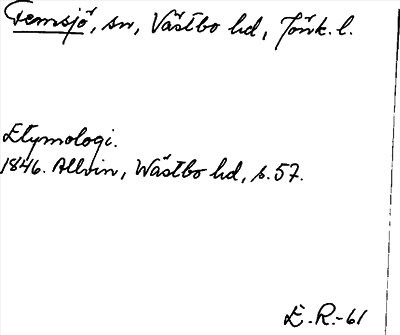 Femsjö, sn, Västbo hd, Jönk. l.
Etymologi.
1846. Allvin, Wästbo hd, s. 57.
E. R.-61